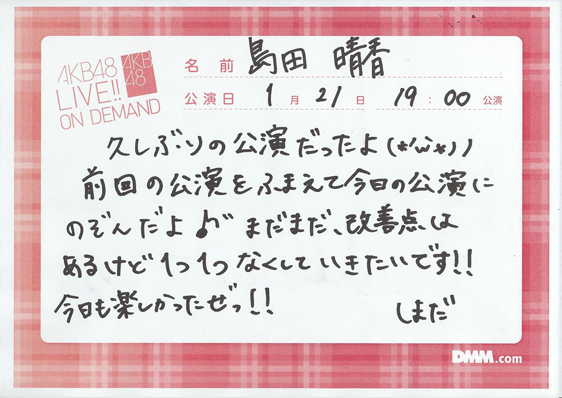 AKB48
LIVE!!
ON DEMAND
AKB
48
名前 島田 晴香
公演日 1月21日 19:00 公演
久しぶりの公演だったよ(*'ω'*))
前回の公演をふまえて今日の公演に
のぞんだよ♪" まだまだ、改善点は
あるけど1つ1つなくしていきたいです!!
今日も楽しかったぜっ!!
しまだ
DMM.com